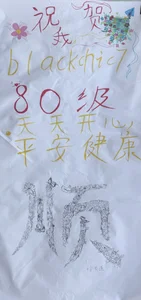 祝贺
我
blackchic
80级
天天开心
平安健康
顺